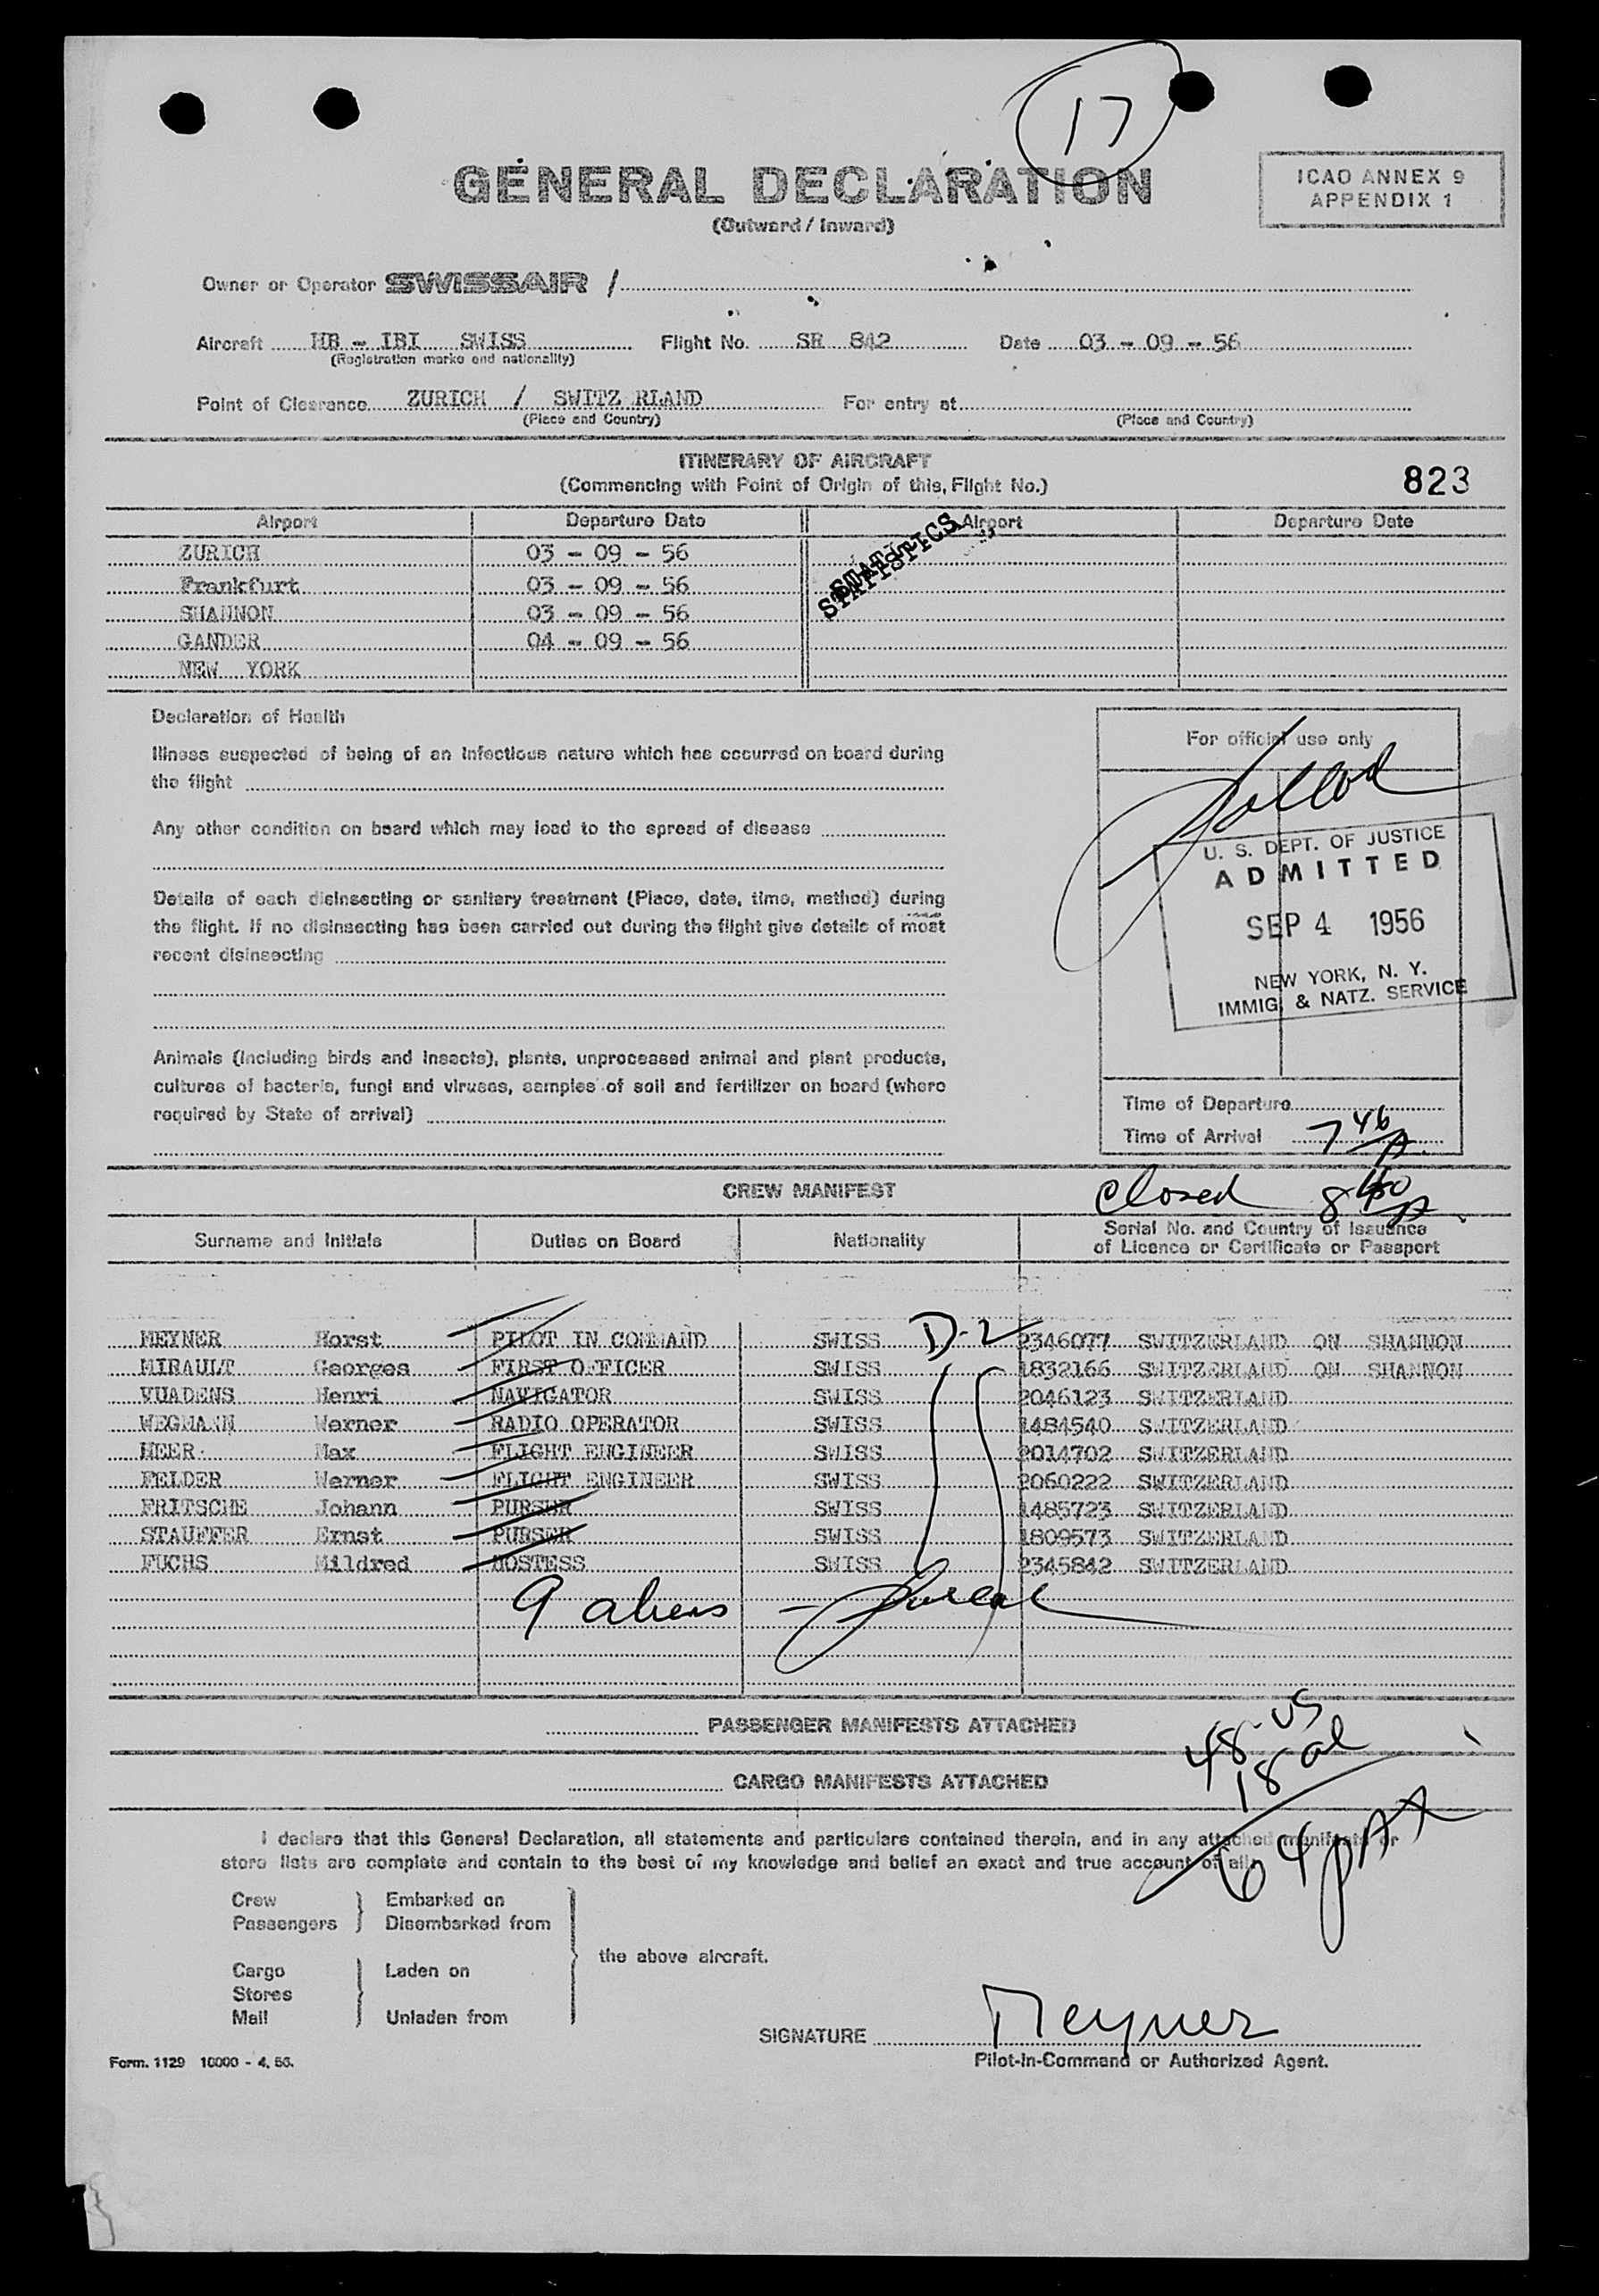 17
GENERAL DECLARATION
(Outward / Inward)
ICAO ANNEX 9
APPENDIX 1
Owner or Operator SWISSAIR /
Aircraft HB - IBI SWISS Flight No. SR 842 Date 03 - 09 - 56
(Registration marks and nationality)
Point of Clearance ZURICH / SWITZ RLAND For entry at
(Place and Country) (Place and Country)
ITINERARY OF AIRCRAFT
(Commencing with Point of Origin of this, Flight No.)
823
Airport Departure Date Airport Departure Date
STATISTICS
ZURICH 03 - 09 - 56
Frankfurt 03 - 09 - 56
SHANNON 03 - 09 - 56
GANDER 04 - 09 - 56
NEW YORK
Declaration of Health
Illness suspected of being of an infectious nature which has occurred on board during
the flight
Any other condition on board which may lead to the spread of disease
Details of each disinsecting or sanitary treatment (Place, date, time, method) during
the flight. If no disinsecting has been carried out during the flight give details of most
recent disinsecting
Animals (including birds and insects), plants, unprocessed animal and plant products,
cultures of bacteria, fungi and viruses, samples of soil and fertilizer on board (where
required by State of arrival)
For official use only
U. S. DEPT. OF JUSTICE
ADMITTED
SEP 4 1956
NEW YORK, N. Y.
IMMIG. & NATZ. SERVICE
Time of Departure
Time of Arrival 7 46 A
CREW MANIFEST
Closed 8 40 A
Surname and Initials Duties on Board Nationality Serial No. and Country of Issuance
of Licence or Certificate or Passport
MEYNER Horst PILOT IN COMMAND SWISS D-2 2346077 SWITZERLAND ON SHANNON
MIRAULT Georges FIRST OFFICER SWISS 1832166 SWITZERLAND ON SHANNON
VUADENS Henri NAVIGATOR SWISS 2046123 SWITZERLAND
WEGMANN Werner RADIO OPERATOR SWISS 1484540 SWITZERLAND
MEER Max FLIGHT ENGINEER SWISS 2014702 SWITZERLAND
FELDER Werner FLIGHT ENGINEER SWISS 2060222 SWITZERLAND
FRITSCHE Johann PURSER SWISS 1485723 SWITZERLAND
STAUFFER Ernst PURSER SWISS 1809573 SWITZERLAND
FUCHS Mildred HOSTESS SWISS 2345842 SWITZERLAND
9 aliens -
PASSENGER MANIFESTS ATTACHED
48 - US
18 al
CARGO MANIFESTS ATTACHED
64 pax
I declare that this General Declaration, all statements and particulars contained therein, and in any attached manifests or
store lists are complete and contain to the best of my knowledge and belief an exact and true account of all:
Crew Embarked on
Passengers Disembarked from
the above aircraft.
Cargo Laden on
Stores
Mail Unladen from
SIGNATURE Meyner
Pilot-in-Command or Authorized Agent.
Form. 1129 10000 - 4. 56.